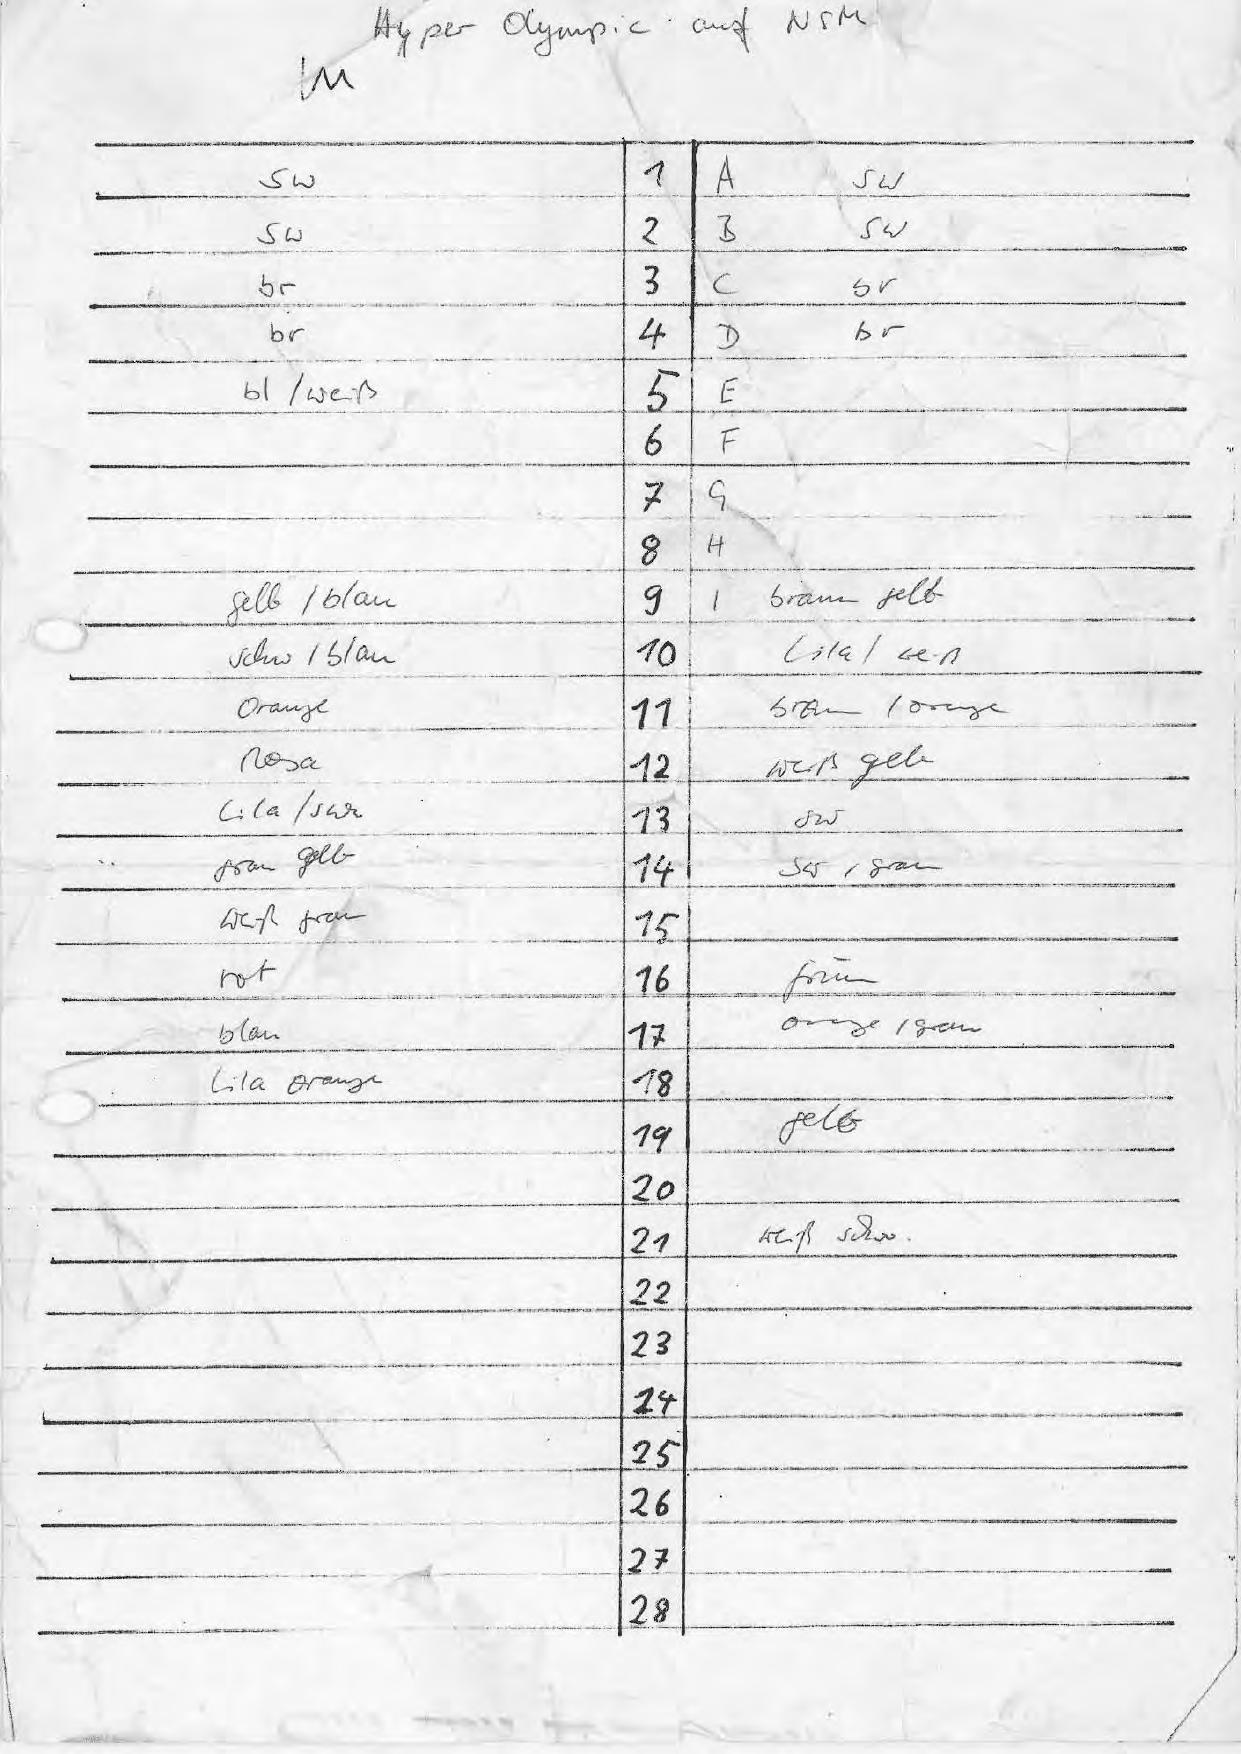 Hyper Olympic auf NSM
sw 1 A sw
sw 2 B sw
br 3 C br
br 4 D br
bl / weiß 5 E
6 F
7 G
8 H
gelb / blau 9 I braun gelb
schw / blau 10 Lila / weiß
Orange 11 braun / orange
Rosa 12 weiß gelb
Lila / swr 13 sw
grau gelb 14 sw / grau
weiß grau 15
rot 16 grün
blau 17 orange / grau
Lila orange 18
19 gelb
20
21 weiß schw.
22
23
24
25
26
27
28